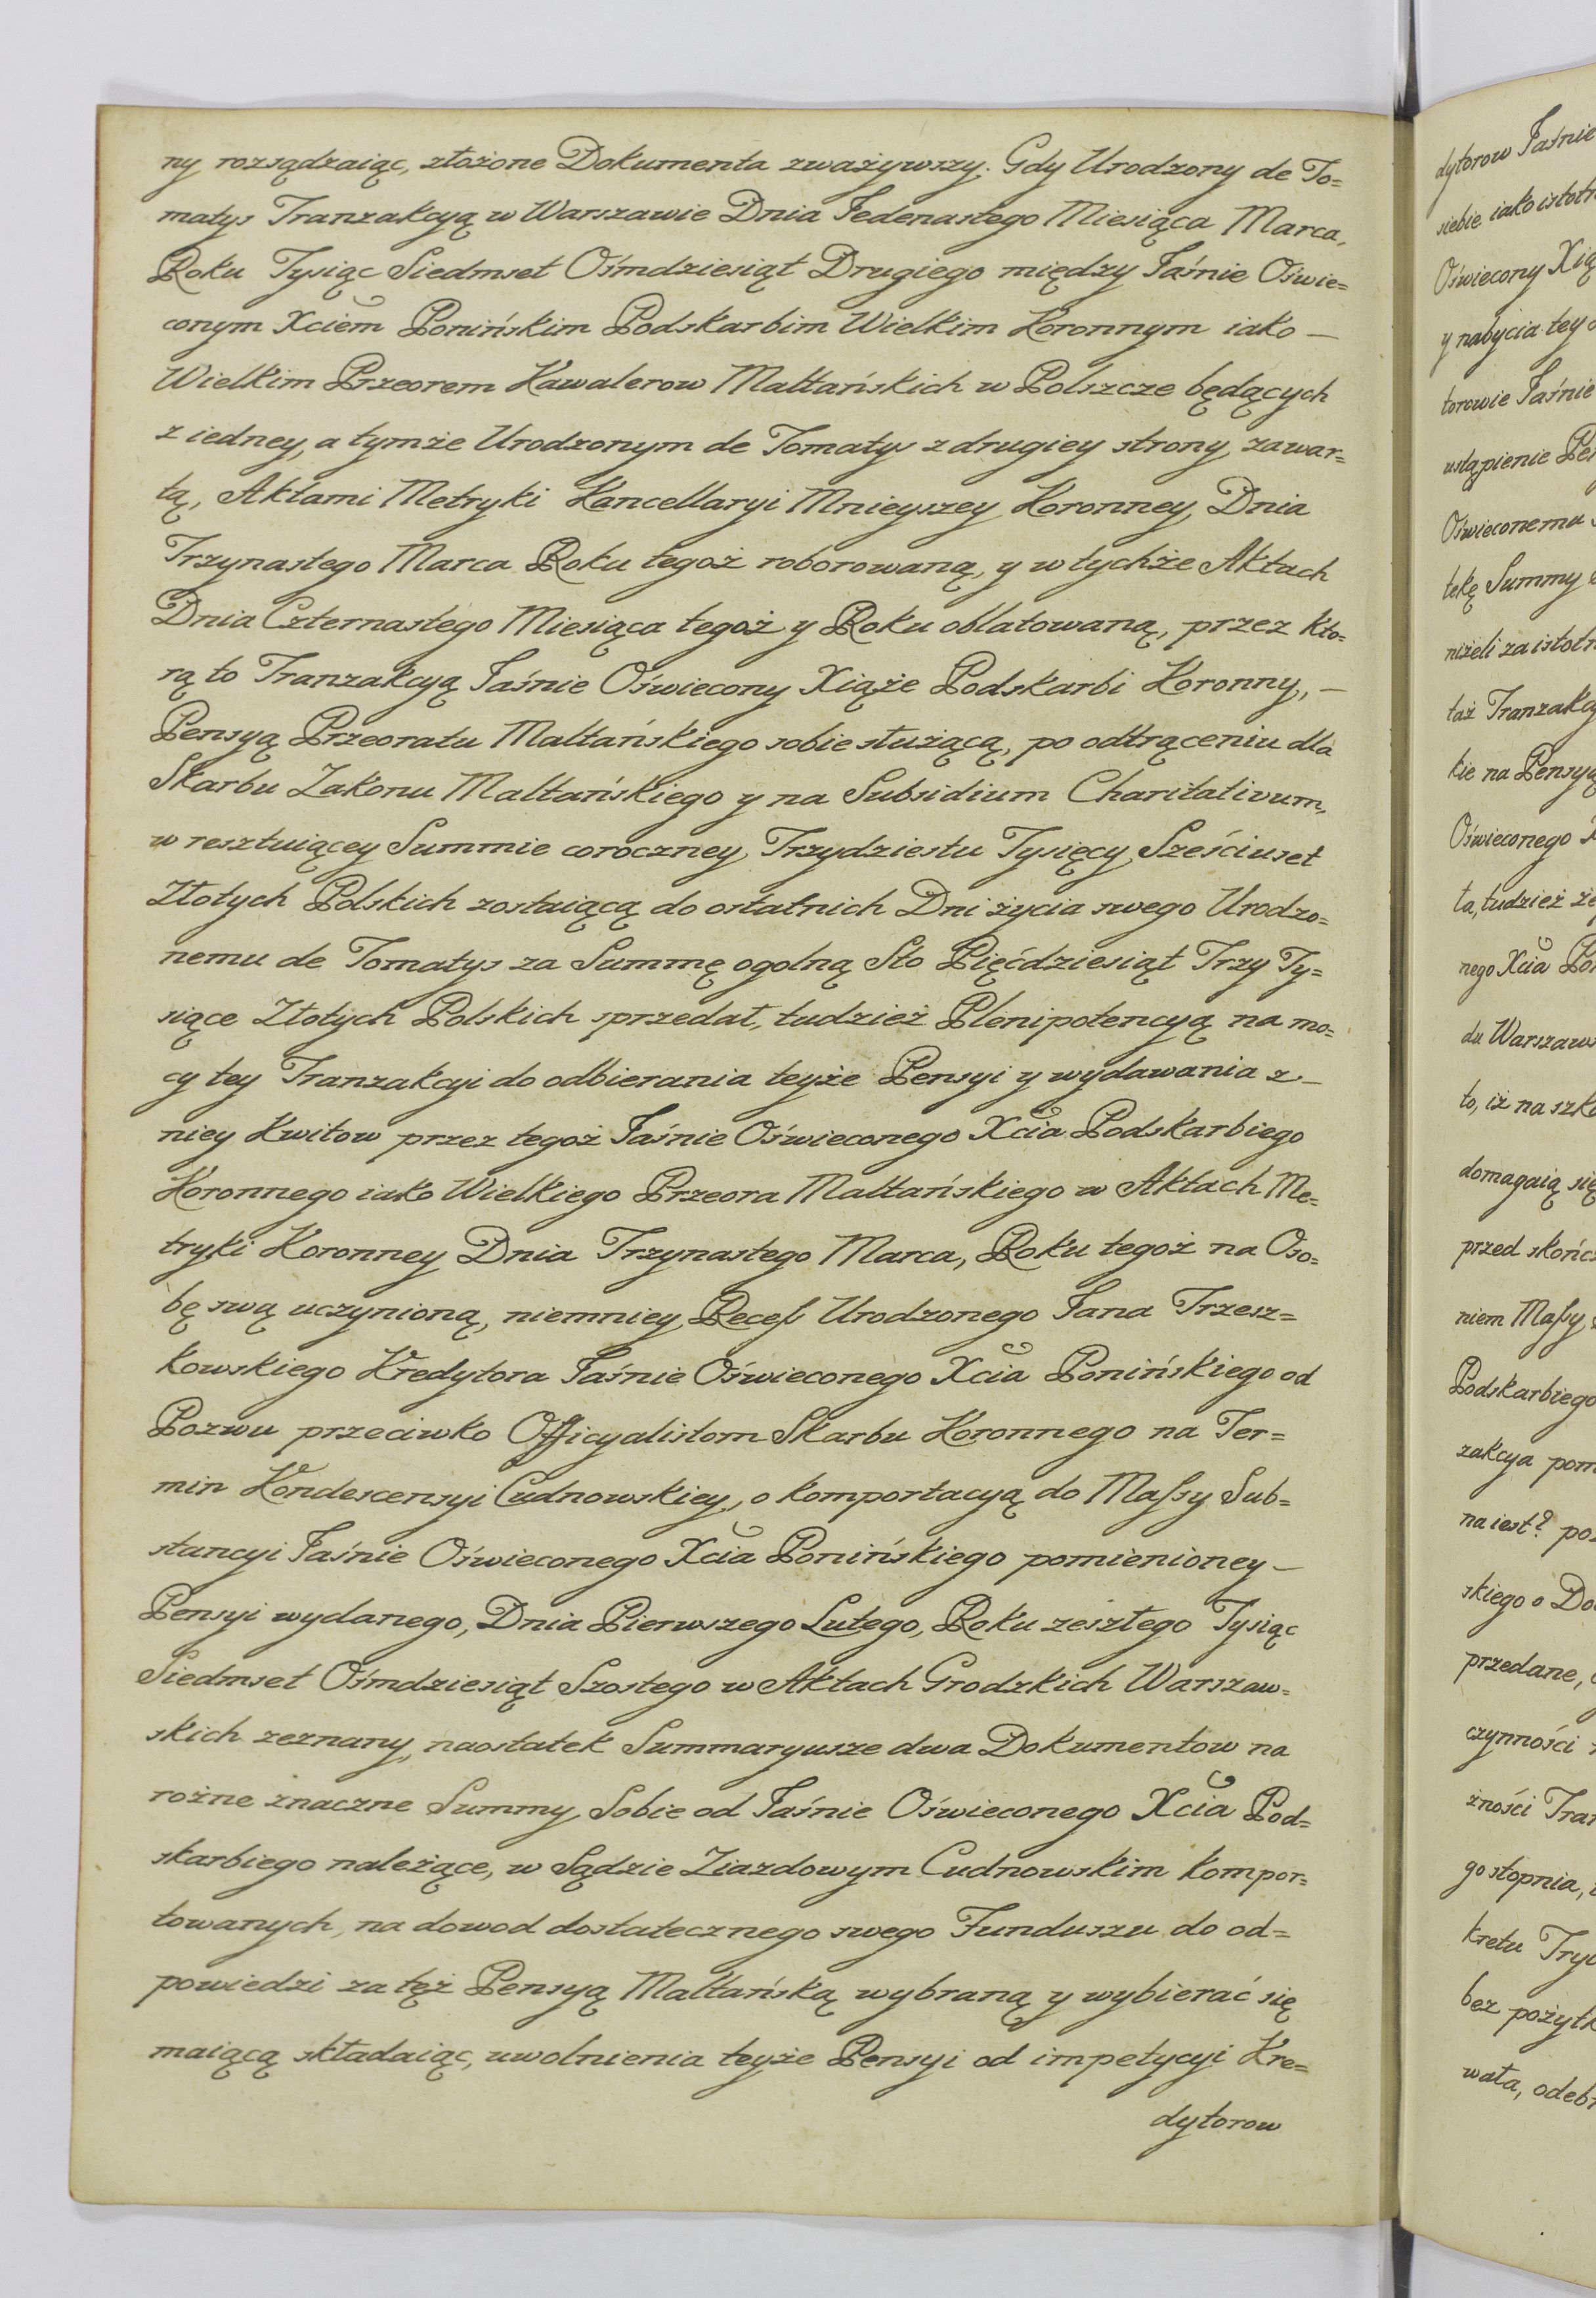 ny rozsądzaiąc, złożone Dokumenta zważywszy. Gdy Urodzony de To=
matys Tranzakcyą w Warszawie Dnia Jedenastego Miesiąca Marca,
Roku Tysiąc Siedmset Ośmdziesiąt Drugiego między Jaśnie Oświe=
conym Xciem Ponińskim Podskarbim Wielkim Koronnym iako —
Wielkim Przeorem Kawalerow Maltańskich w Polszcze będących
z iedney, a tymże Urodzonym de Tomatys z drugiey strony, zawar=
tą, Aktami Metryki Kancellaryi Mnieyszey Koronney, Dnia
Trzynastego Marca Roku tegoż roborowaną, y w tychże Aktach
Dnia Czternastego Miesiąca tegoż y Roku oblatowaną, przez kto=
rą to Tranzakcyą Jaśnie Oświecony Xiąże Podskarbi Koronny, —
Pensyą Przeoratu Maltańskiego sobie służącą, po odtrąceniu dla
Skarbu Zakonu Maltańskiego y na Subsidium Charitativum,
w resztuiącey Summie coroczney, Trzydziestu Tysięcy Sześciuset
Złotych Polskich zostaiącą do ostatnich Dni życia swego Urodzo=
nemu de Tomatys za Summę ogolną Sto Pięćdziesiąt Trzy Ty=
siące Złotych Polskich sprzedał, tudzież Plenipotencyą na mo=
cy tey Tranzakcyi do odbierania teyże Pensyi y wydawania z —
niey Kwitow przez tegoż Jaśnie Oświeconego Xcia Podskarbiego
Koronnego iako Wielkiego Przeora Maltańskiego w Aktach Me=
tryki Koronney Dnia Trzynastego Marca, Roku tegoż na Oso=
bę swą uczynioną, niemniey Recess Urodzonego Jana Trzesz=
kowskiego Kredytora Jaśnie Oświeconego Xcia Ponińskiego od
Pozwu przeciwko Officyalistom Skarbu Koronnego na Ter=
min Kondescensyi Cudnowskiey, o komportacyą do Massy Sub=
stancyi Jaśnie Oświeconego Xcia Ponińskiego pomienioney —
Pensyi wydanego, Dnia Pierwszego Lutego, Roku zeszłego Tysiąc
Siedmset Ośmdziesiąt Szostego w Aktach Grodzkich Warszaw=
skich zeznany, naostatek Summaryusze dwa Dokumentow na
rożne znaczne Summy, Sobie od Jaśnie Oświeconego Xcia Pod=
skarbiego należące, w Sądzie Ziazdowym Cudnowskim kompor=
towanych, na dowod dostatecznego swego Funduszu do od=
powiedzi za tęż Pensyą Maltańską wybraną y wybierać się
maiącą składaiąc, uwolnienia teyże Pensyi od impetycyi Kre=
dytorow
dytorow Jaśnie
siebie iako
Oświecony
y nabycia tey
torowie Jaśnie
ustąpienie
Oświeconemu
tekę Summy
niżeli za
taż
kie na
Oświeconego
ta, tudzież
nego Xcia
du
to, iż na
domagaią się
przed
niem Massy
Podskarbiego
zakcya
na iest?
skiego o
przedane,
czynności
żności
go stopnia,
kretu
bez
wała,